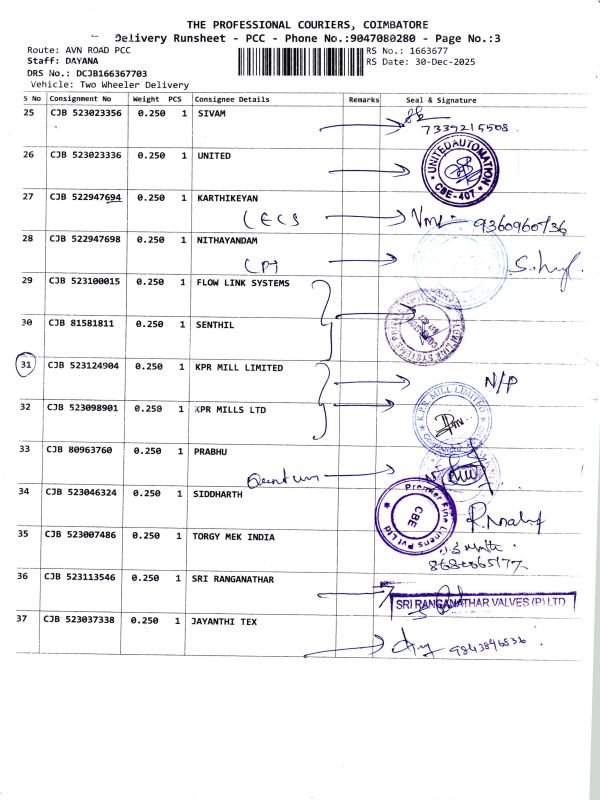 THE PROFESSIONAL COURIERS, COIMBATORE
Delivery Runsheet - PCC - Phone No.:9047080280 - Page No.:3
Route: AVN ROAD PCC
RS No.: 1663677
Staff: DAYANA
RS Date: 30-Dec-2025
DRS No.: DCJB166367703
Vehicle: Two Wheeler Delivery
S No Consignment No Weight PCS Consignee Details Remarks Seal & Signature
25 CJB 523023356 0.250 1 SIVAM
7339215508
26 CJB 523023336 0.250 1 UNITED
UNITED AUTOMATION CBE-407
27 CJB 522947694 0.250 1 KARTHIKEYAN
LECS
28 CJB 522947698 0.250 1 NITHAYANDAM
29 CJB 523100015 0.250 1 FLOW LINK SYSTEMS
30 CJB 81581811 0.250 1 SENTHIL
31 CJB 523124904 0.250 1 KPR MILL LIMITED
N/P
32 CJB 523098901 0.250 1 KPR MILLS LTD
K.P.R. MILL LIMITED
33 CJB 80963760 0.250 1 PRABHU
Quantum
34 CJB 523046324 0.250 1 SIDDHARTH
Premier Fine Linens Pvt Ltd
CBE
35 CJB 523007486 0.250 1 TORGY MEK INDIA
36 CJB 523113546 0.250 1 SRI RANGANATHAR
SRI RANGANATHAR VALVES (P) LTD
37 CJB 523037338 0.250 1 JAYANTHI TEX
9843896836